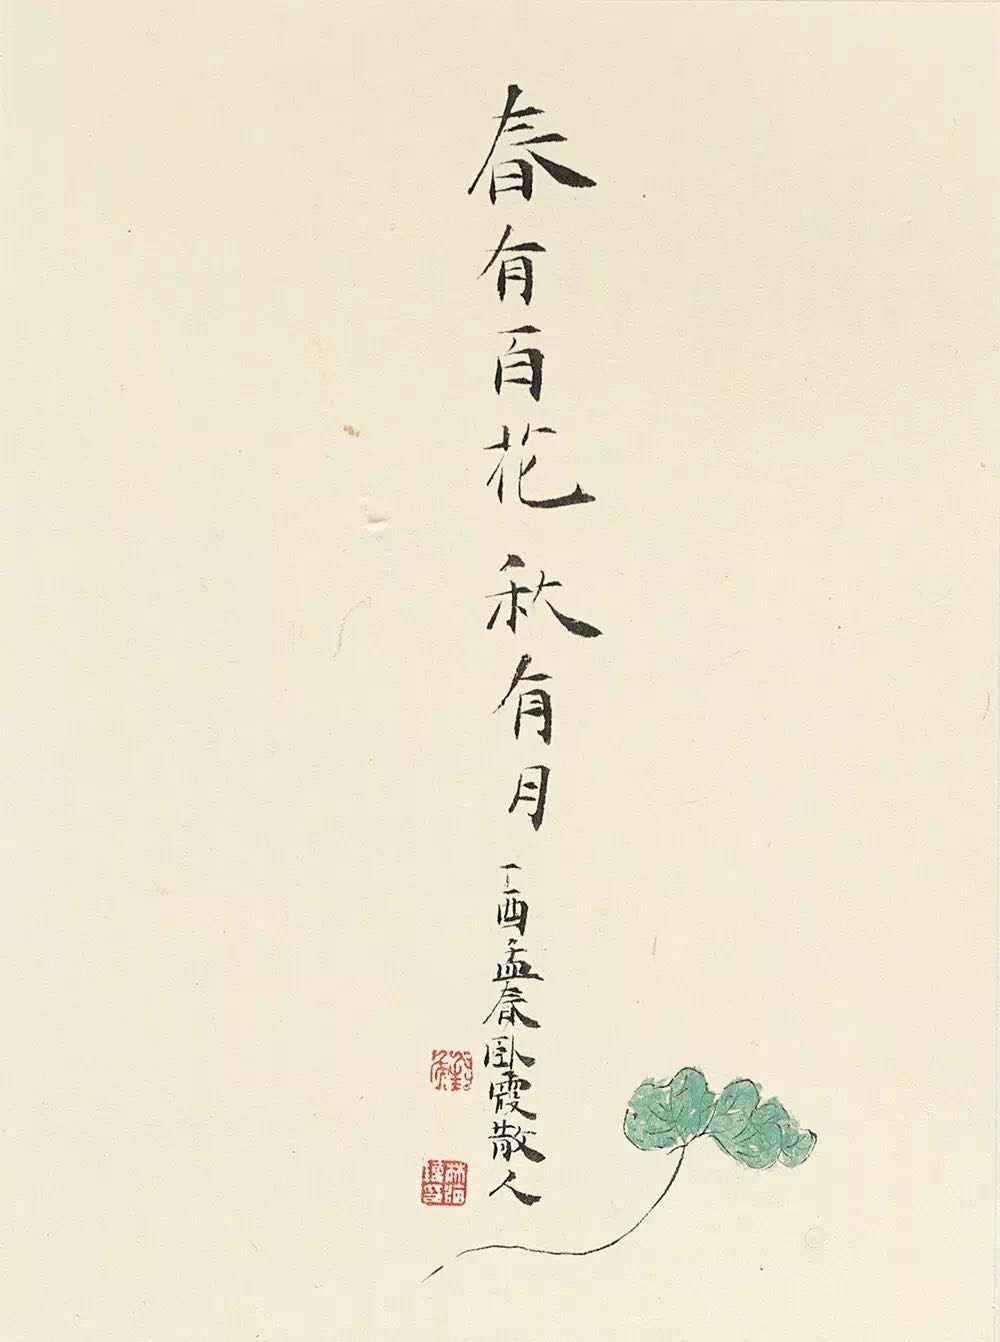 春有百花 秋有月
丁酉孟春卧霞散人